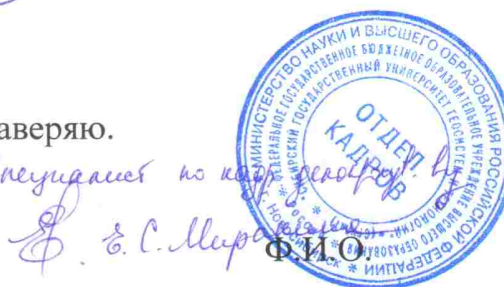 аверяю.
специалист по кадр.
Е. С. Мира
Ф.И.О.
МИНИСТЕРСТВО НАУКИ И ВЫСШЕГО ОБРАЗОВАНИЯ РОССИЙСКОЙ ФЕДЕРАЦИИ
ФЕДЕРАЛЬНОЕ ГОСУДАРСТВЕННОЕ БЮДЖЕТНОЕ ОБРАЗОВАТЕЛЬНОЕ УЧРЕЖДЕНИЕ ВЫСШЕГО ОБРАЗОВАНИЯ
ГОСУДАРСТВЕННЫЙ УНИВЕРСИТЕТ ГЕОСИСТЕМ
ОТДЕЛ
КАДРОВ